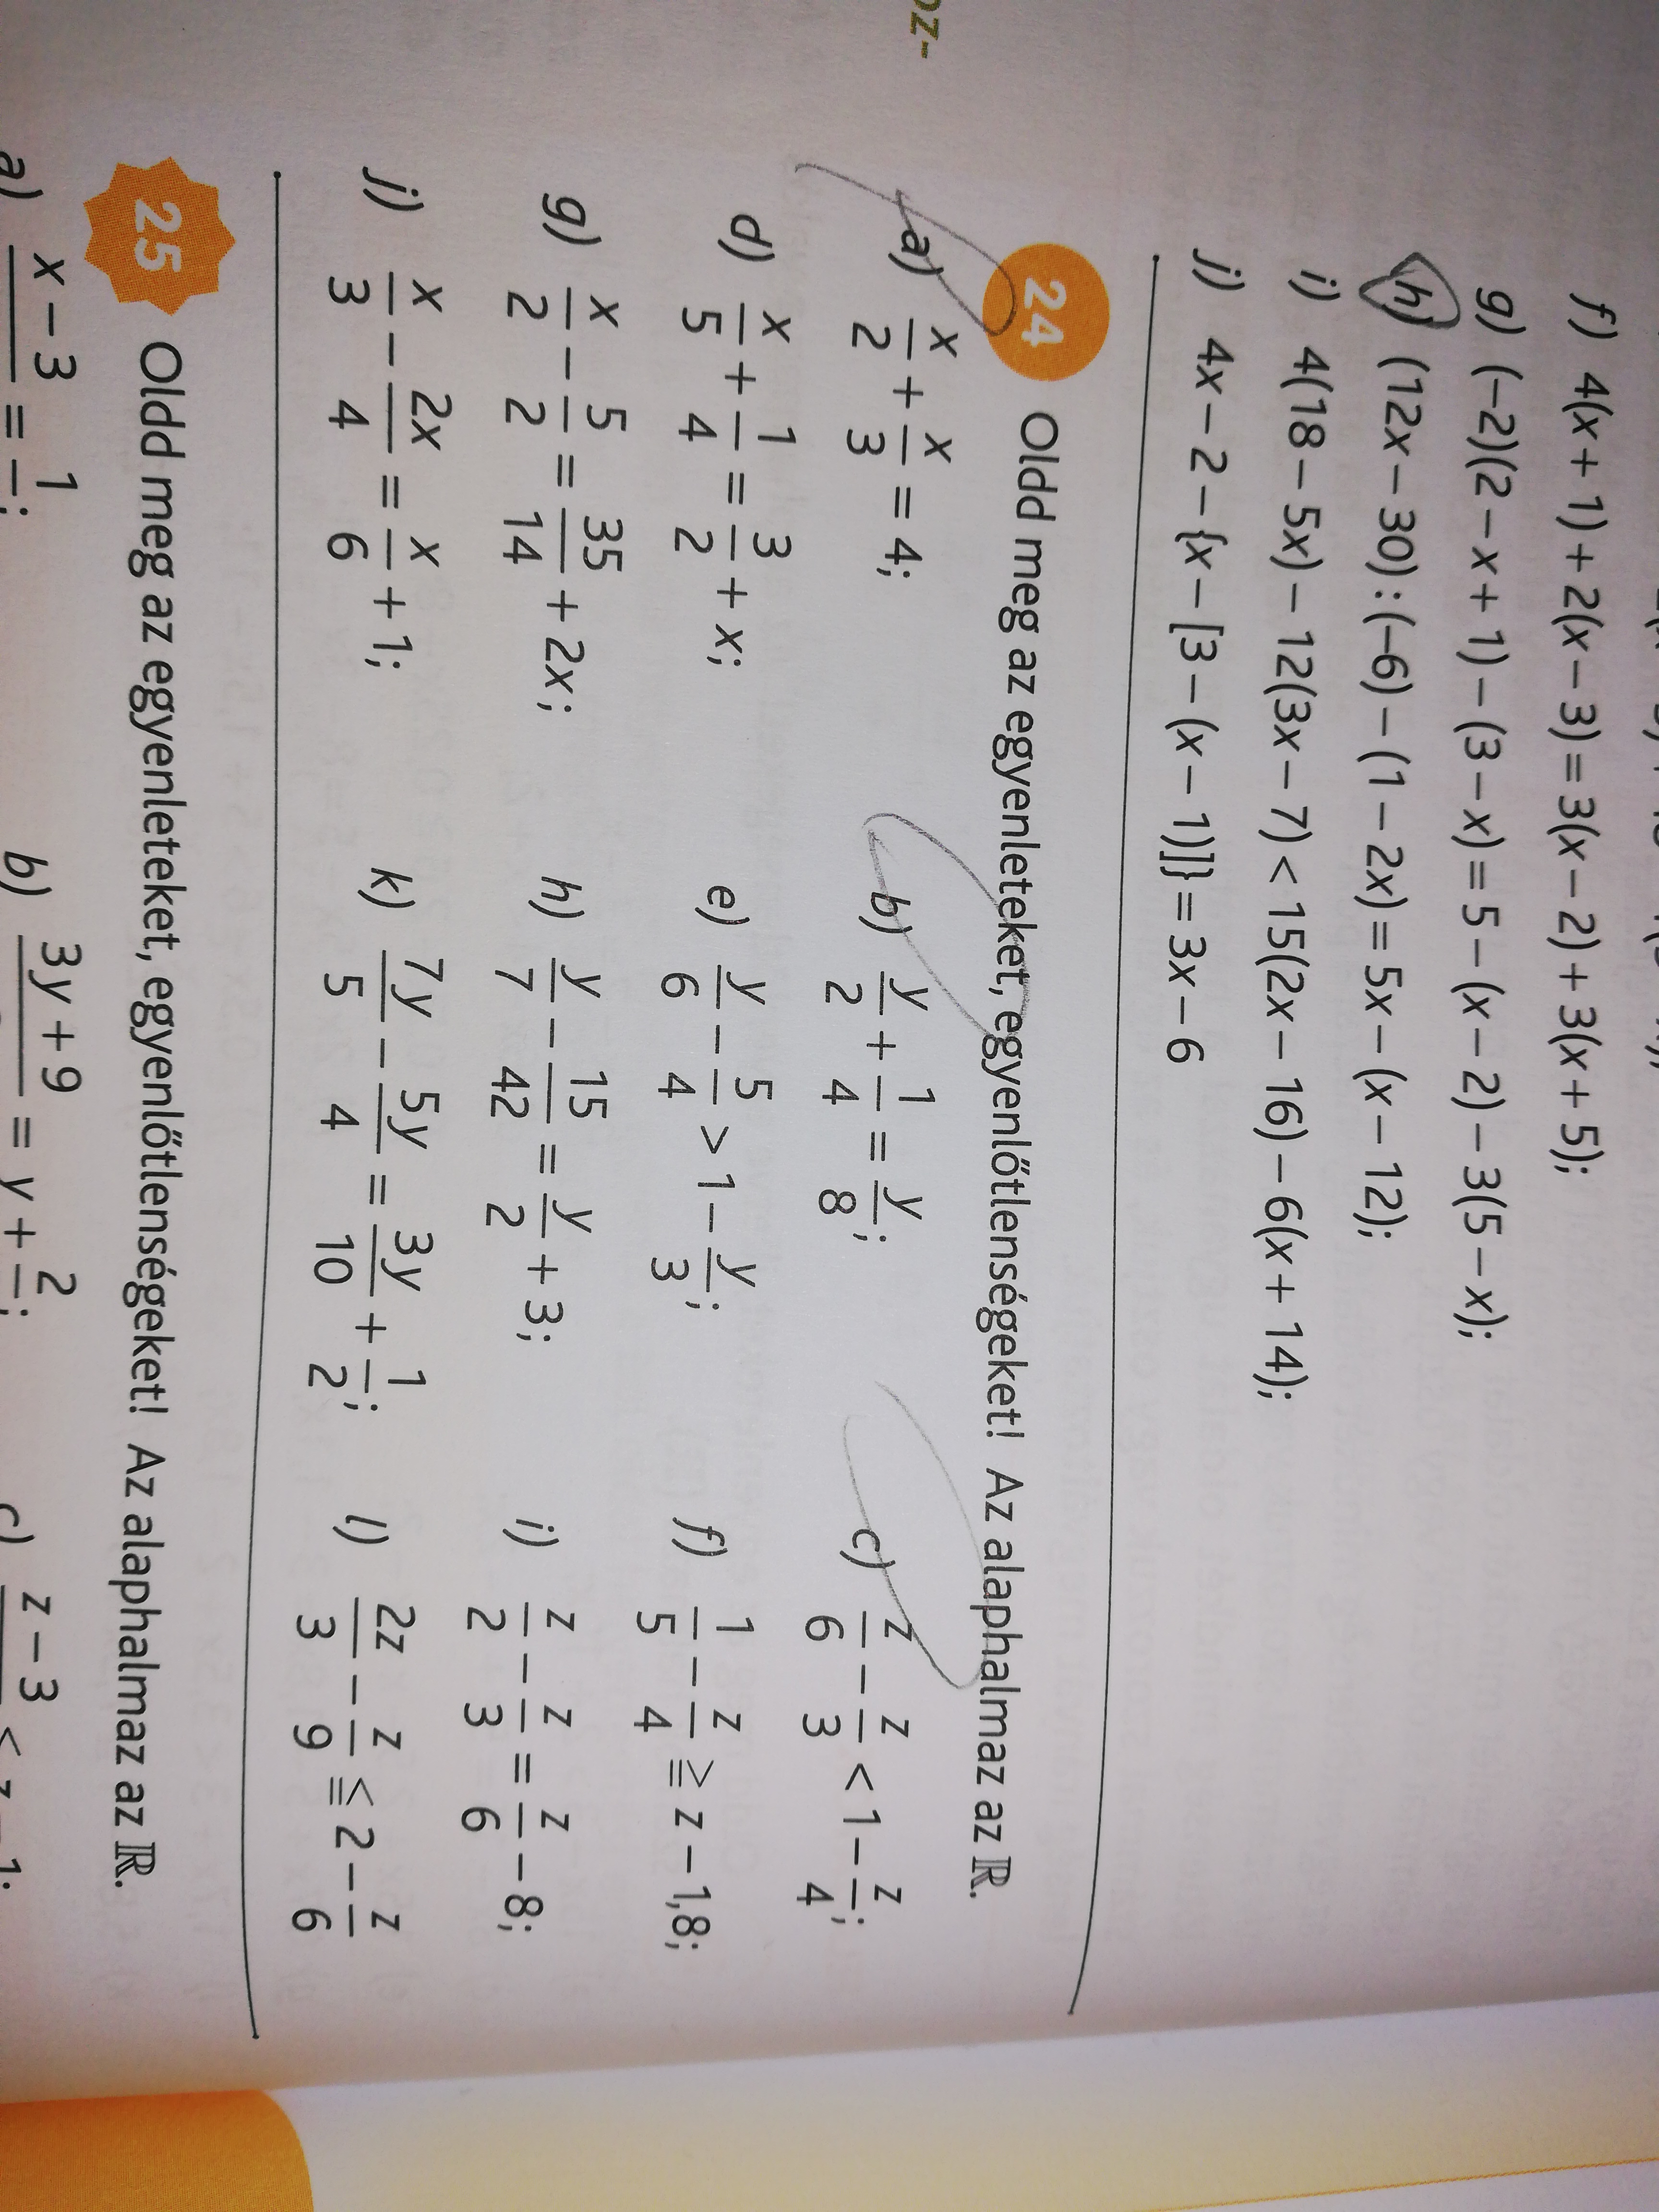 f) 4(x + 1) + 2(x – 3) = 3(x – 2) + 3(x + 5);
g) (–2)(2 – x + 1) – (3 – x) = 5 – (x – 2) – 3(5 – x);
h) (12x – 30) : (–6) – (1 – 2x) = 5x – (x – 12);
i) 4(18 – 5x) – 12(3x – 7) < 15(2x – 16) – 6(x + 14);
j) 4x – 2 – {x – [3 – (x – 1)]} = 3x – 6
oz-
24 Oldd meg az egyenleteket, egyenlőtlenségeket! Az alaphalmaz az ℝ.
a) x/2 + x/3 = 4; b) y/2 + 1/4 = y/8; c) z/6 – z/3 < 1 – z/4;
d) x/5 + 1/4 = 3/2 + x; e) y/6 – 5/4 > 1 – y/3; f) 1/5 – z/4 ≧ z – 1,8;
g) x/2 – 5/2 = 35/14 + 2x; h) y/7 – 15/42 = y/2 + 3; i) z/2 – z/3 = z/6 – 8;
j) x/3 – 2x/4 = x/6 + 1; k) 7y/5 – 5y/4 = 3y/10 + 1/2; l) 2z/3 – z/9 ≦ 2 – z/6
25 Oldd meg az egyenleteket, egyenlőtlenségeket! Az alaphalmaz az ℝ.
a) x – 3 = 1 ; b) 3y + 9 = y + 2 ; c) z – 3 < z – 1;